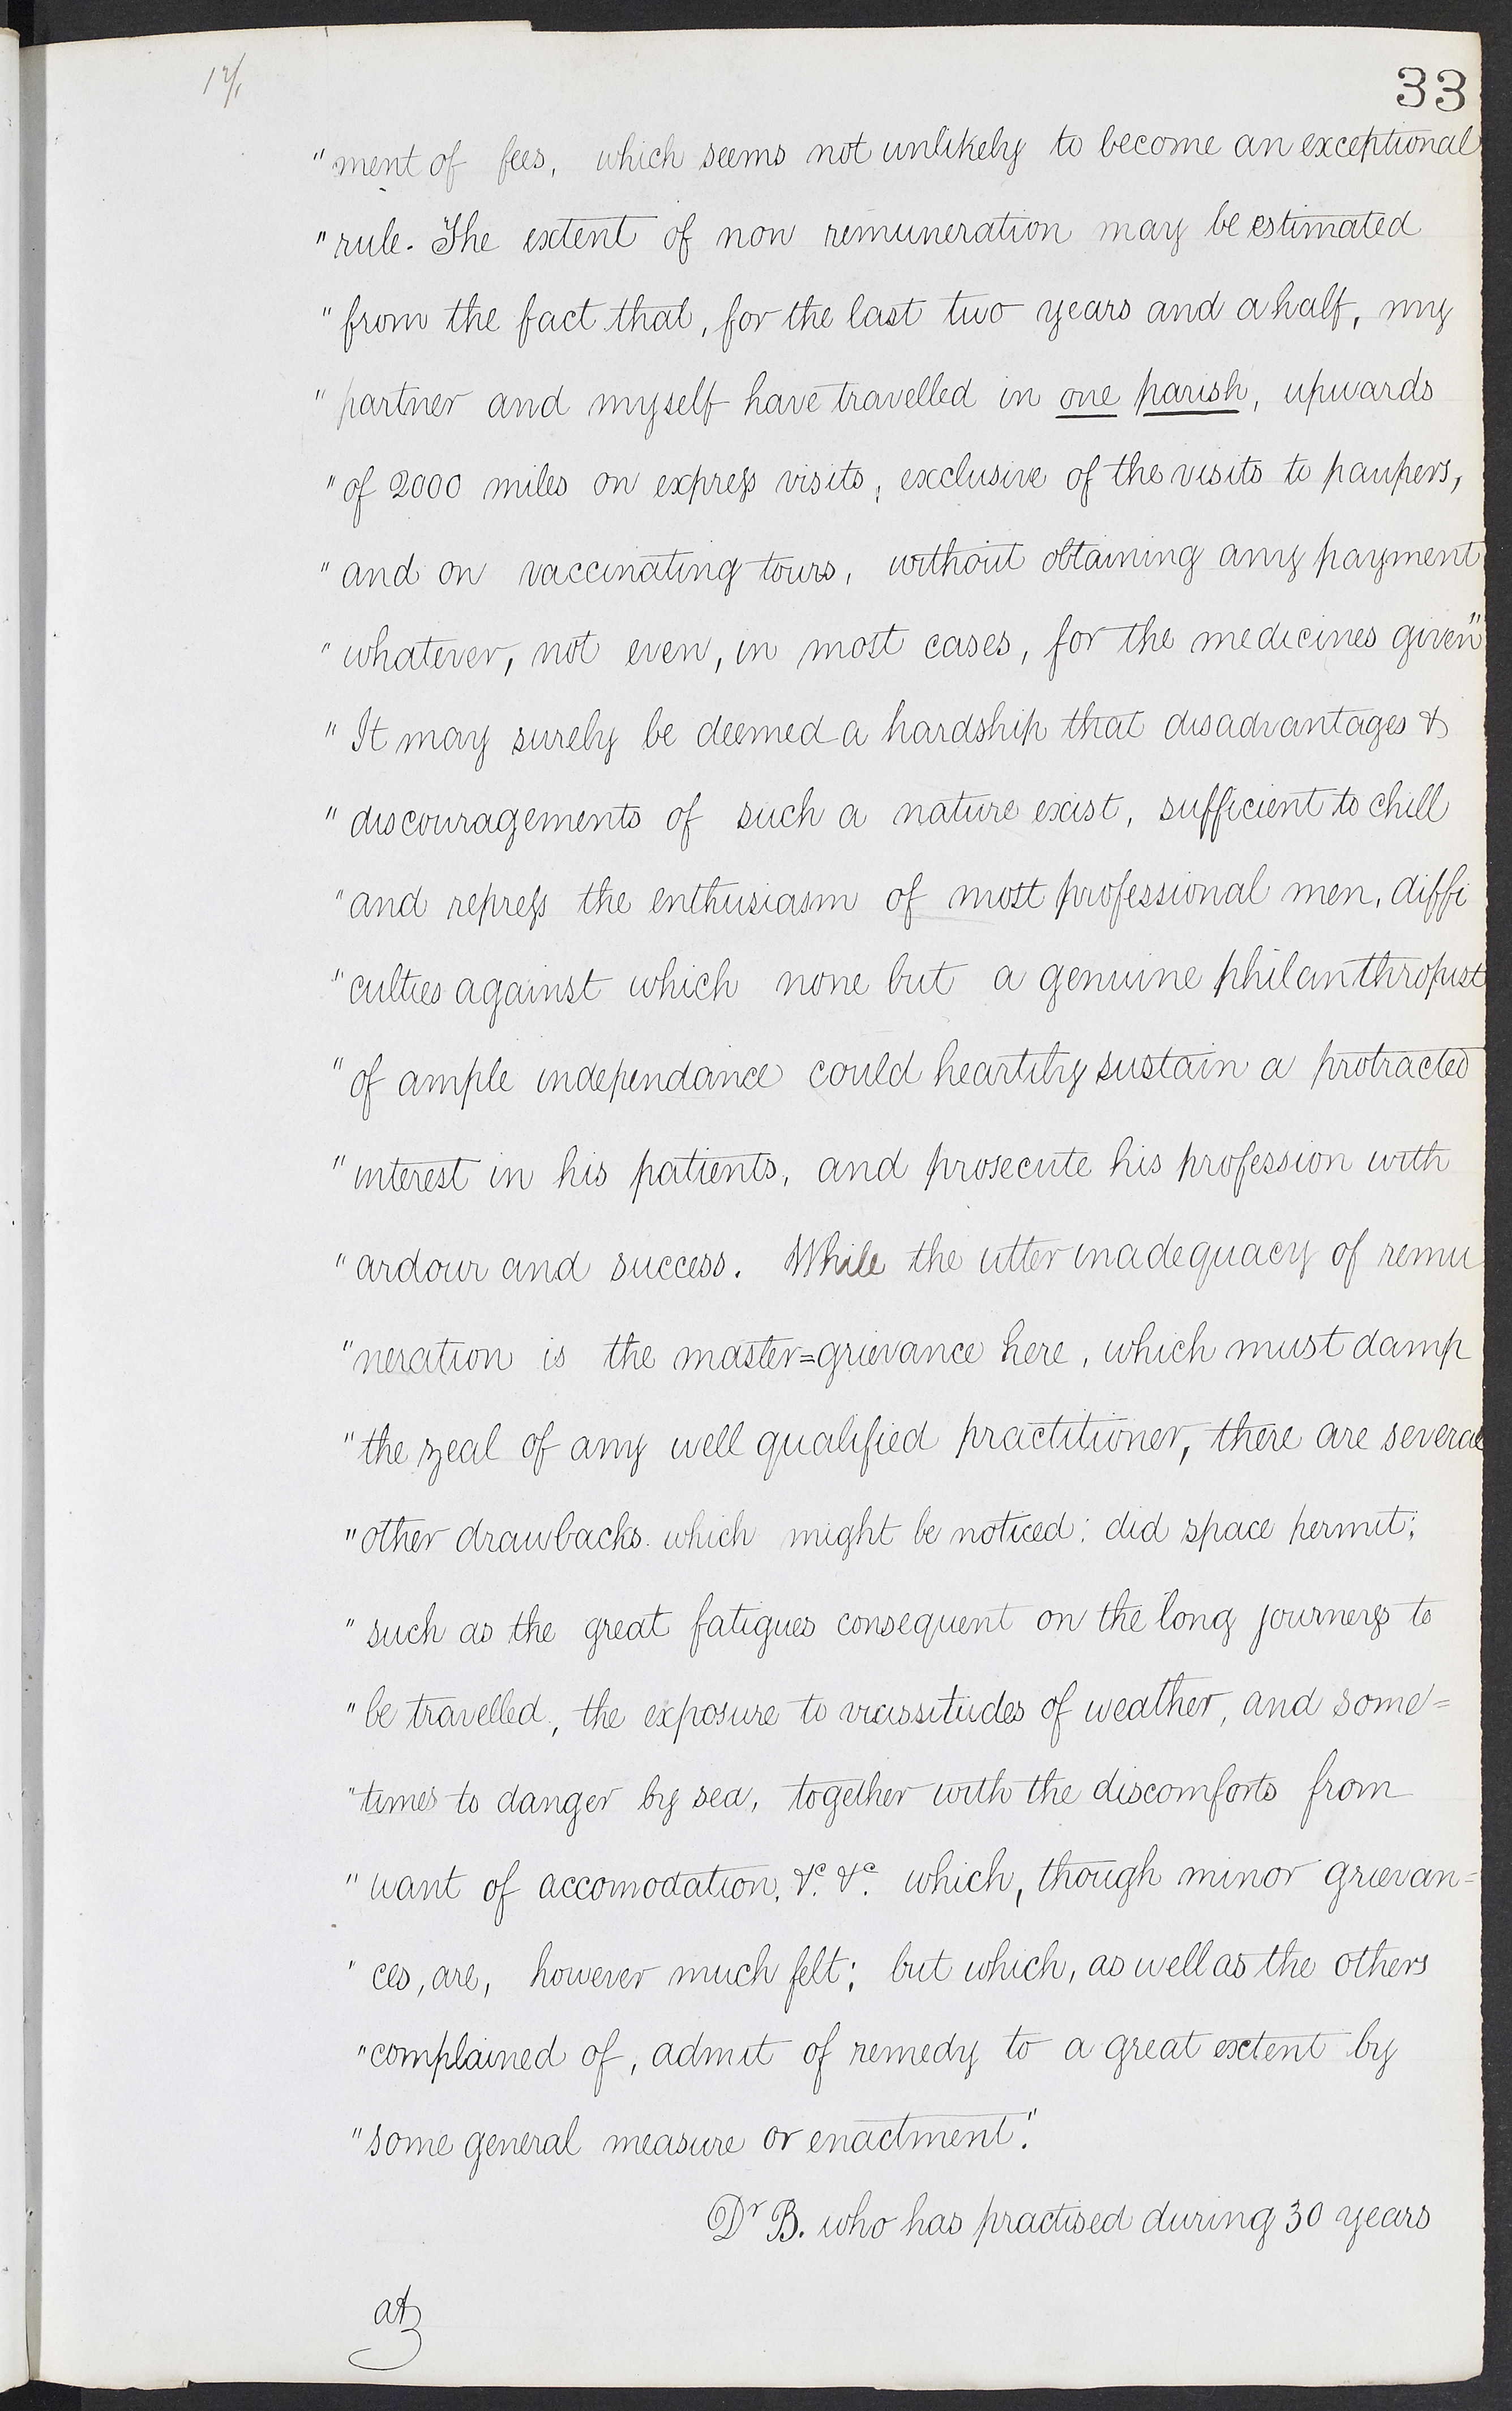 33
"ment of fees, which seems not unlikely to become an exceptional
"rule. The extent of non remuneration may be estimated
"from the fact that, for the last two years and a half, my
"partner and myself have travelled in one parish, upwards
"of 2000 miles on express visits, exclusive of the visits to paupers,
"and on vaccinating tours, without obtaining any payment
"whatever, not even, in most cases, for the medicines given"
"It may surely be deemed a hardship that disadvantages &
"discouragements of such a nature exist, sufficient to chill
"and repress the enthusiasm of most professional men, diffi
"culties against which none but a genuine philanthropist
"of ample independance could heartily sustain a protracted
"interest in his patients, and prosecute his profession with
"ardour and success. While the utter inadequacy of remu
"neration is the master=grievance here, which must damp
"the zeal of any well qualified practitioner, there are several
"other drawbacks which might be noticed: did space permit;
"such as the great fatigues consequent on the long journeys to
"be travelled, the exposure to vicissitudes of weather, and some=
"times to danger by sea, together with the discomforts from
"want of accomodation, &c. &c. which, though minor grievan=
"ces, are, however much felt; but which, as well as the others
"complained of, admit of remedy to a great extent by
"some general measure or enactment."
Dr B. who has practised during 30 years
at